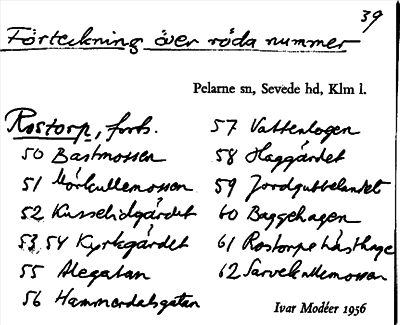 39
Förteckning över röda nummer
Pelarne sn, Sevede hd, Klm l.
Rostorp, forts.
50 Bastmossen
51 Mörkullemossen
52 Kusselidgärdet
53, 54 Kyrkgärdet
55 Alegatan
56 Hammardalsgatan
57 Vattenlogen
58 Haggärdet
59 Jordgubbelandet
60 Baggehagen
61 Rostorps hästhage
62 Sarvekullemossen
Ivar Modéer 1956